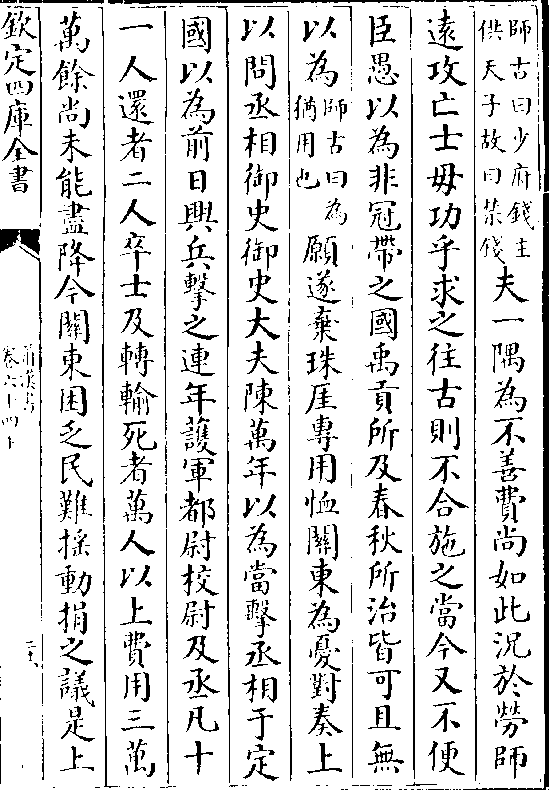 師古曰少府錢主
供天子故曰禁錢
夫一隅為不善費尚如此況於勞師
遠攻亡士毋功乎求之往古則不合施之當今又不便
臣愚以為非冠帶之國禹貢所及春秋所治皆可且無
以為
師古曰為
猶用也
願遂棄珠厓專用恤關東為憂對奏上
以問丞相御史御史大夫陳萬年以為當擊丞相于定
國以為前日興兵擊之連年護軍都尉校尉及丞凡十
一人還者二人卒士及轉輸死者萬人以上費用三萬
萬餘尚未能盡降今關東困乏民難揺動捐之議是上
欽定四庫全書
前漢書
卷六十四下